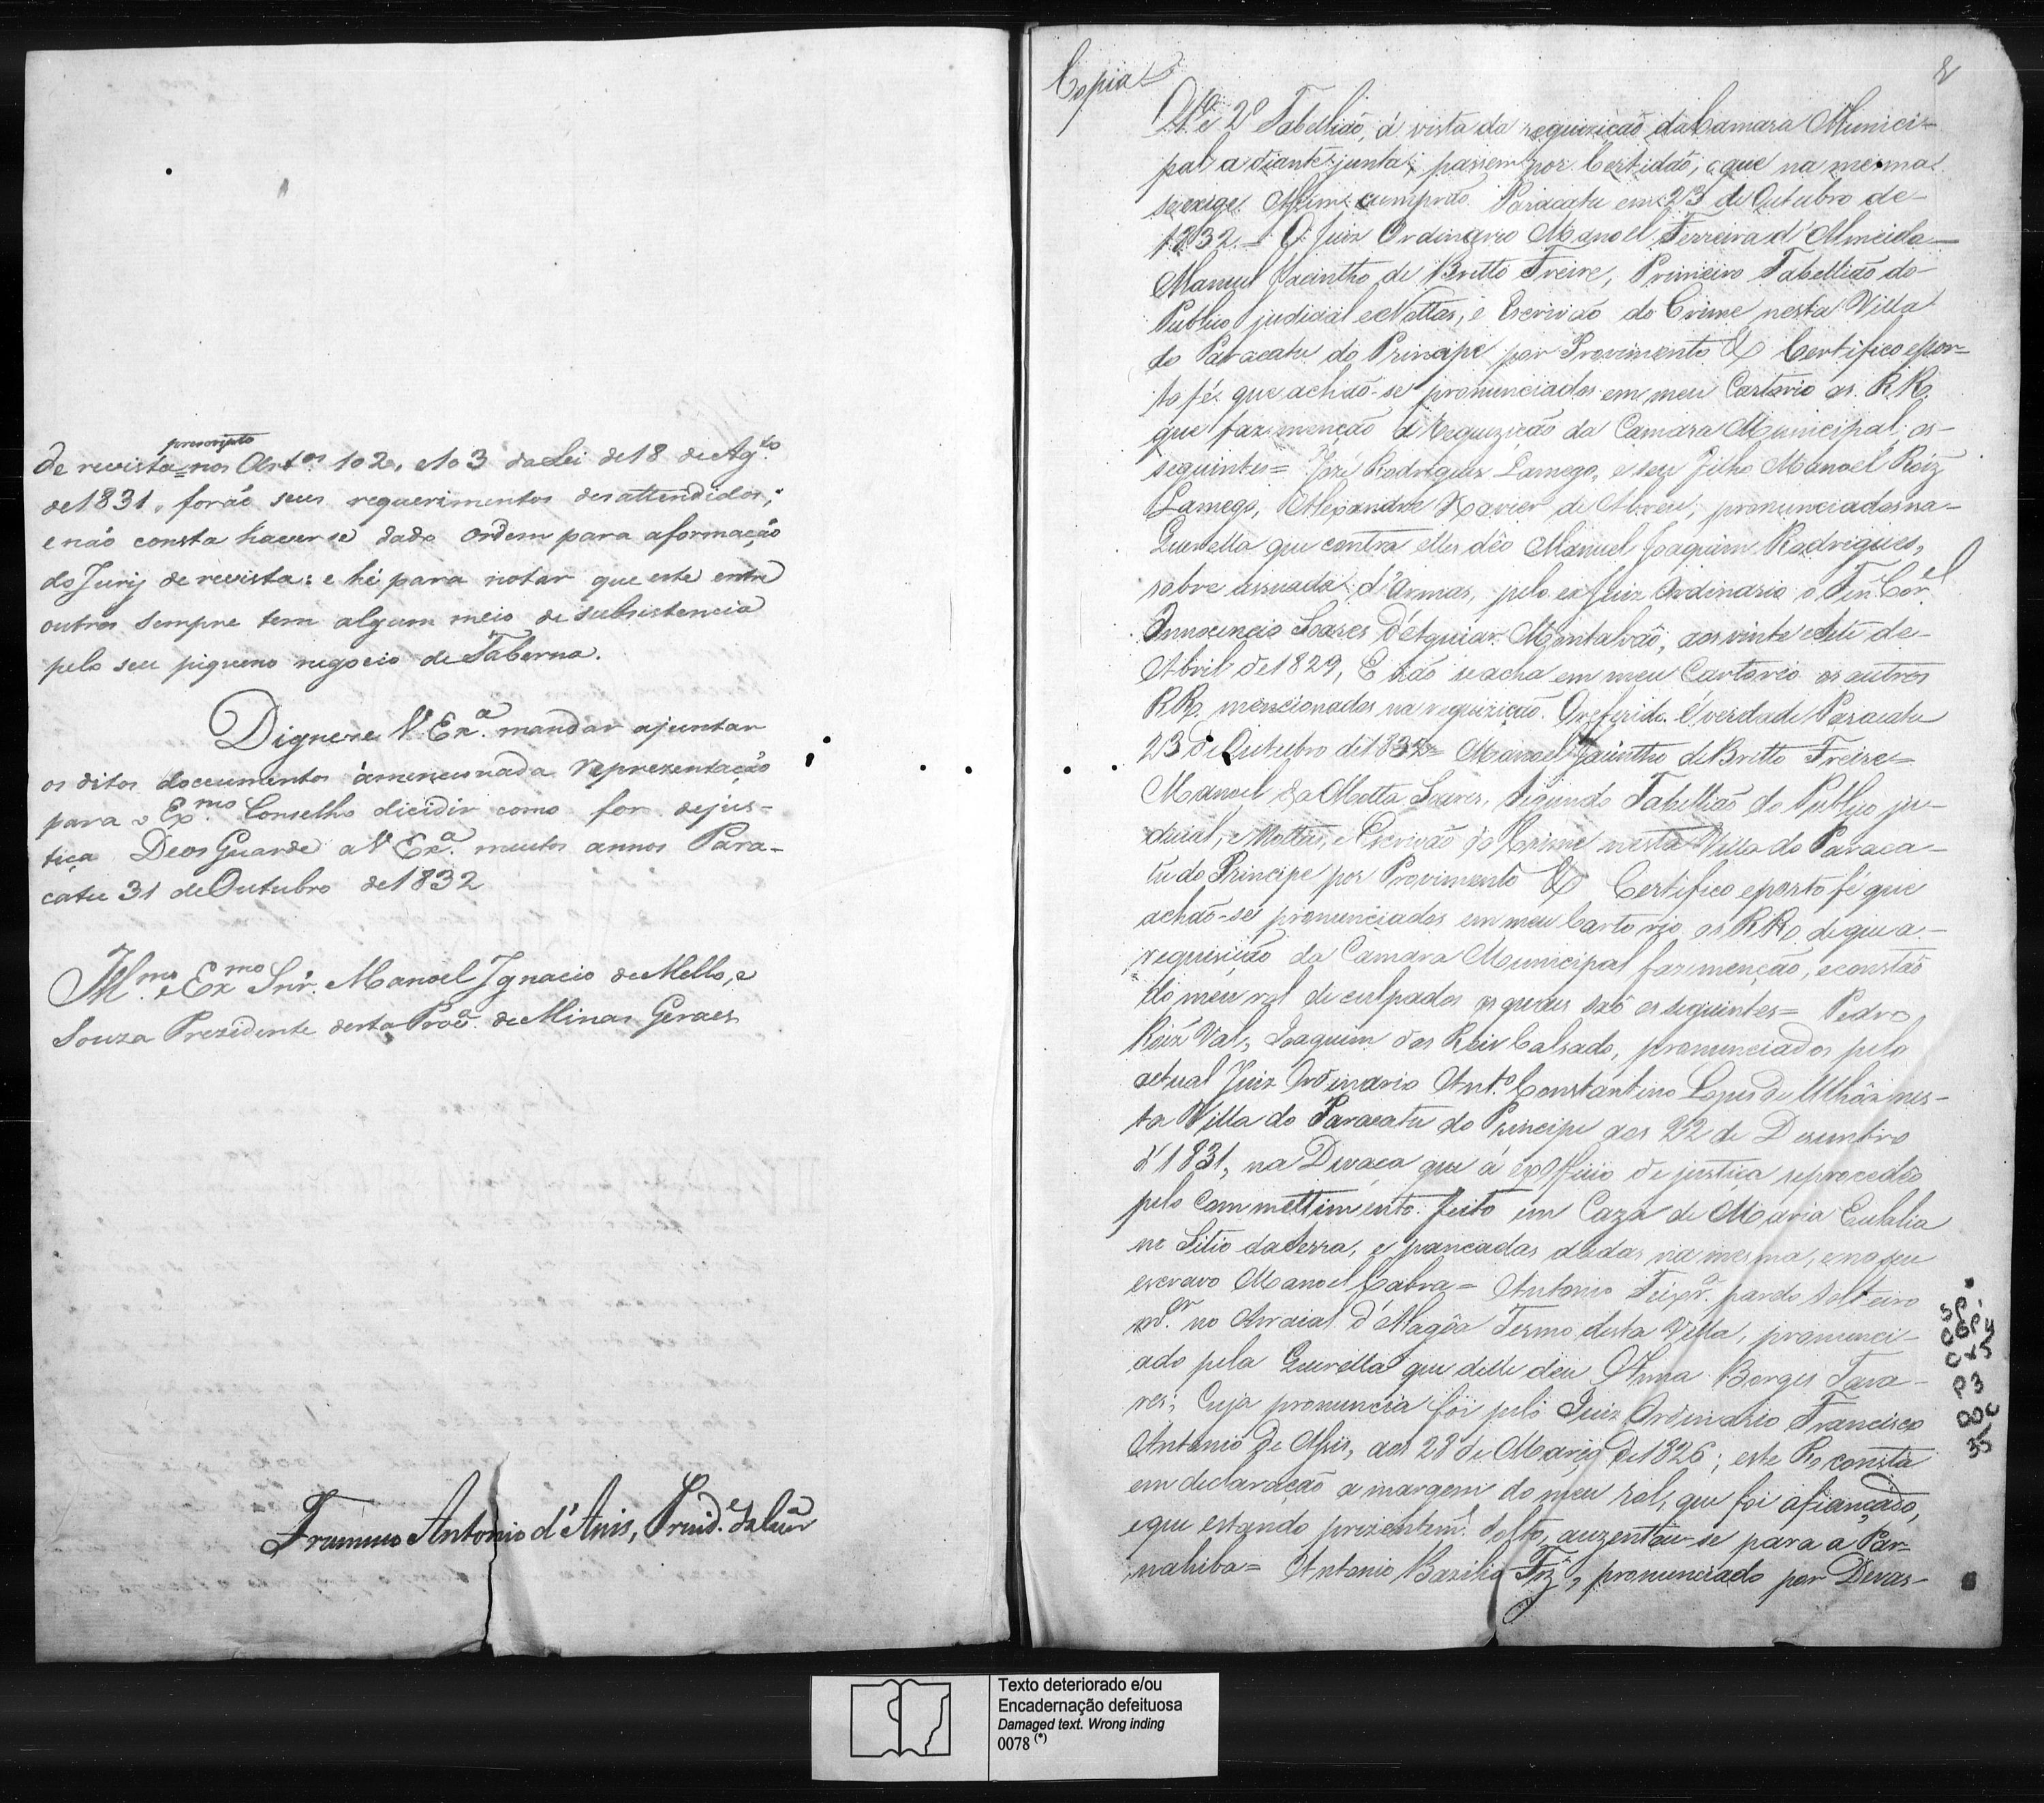 prescripto
de revista nos Art.os 102, e 103 da Lei de 18 de Ag.to
de 1831, forão seus requerimentos desattendidos,
e não consta haver se dado ordem para a formação
do Jury de revista: e hé para notar que este entre
outros sempre tem algum meio de subsistencia
pelo seu piqueno negocio de Taberna.
Digne se V. Ex.a mandar ajuntar
os ditos documentos á mencionada reprezentação
para o Ex.mo Conselho dicidir como for de jus-
tiça Deos Guarde a V Ex.a muitos annos Para-
catu 31 de Outubro de 1832
Ill.mo e Ex.mo Snr. Manoel Ignacio de Mello, e
Souza Prezidente desta Prov.a de Minas Geraes
Antonio d'Assis, Prezid.e da Cam.a
Copia
1.o e 2.o Tabellião, á vista da requizição da Camara Munici-
pal a diante junta; passem por Certidão, o que na mesma
se exige. Assim cumprão. Paracatu em 23 de Outubro de
1832 = O Juiz Ordinario Manoel Ferreira d'Almeida
Manuel Jacintho de Britto Freire, Primeiro Tabellião do
Publico judicial e Nottas, e Escrivão do Crime nesta Villa
do Paracatu do Principe por Provimento & Certifico e por-
to fé que achão-se pronunciados em meu Cartorio os RR.
que faz menção a requizição da Camara Municipal, os
seguintes = José Rodrigues Lamego, e seu filho Manoel Roiz
Lamego, Alexandre Xavier de Abreu, pronunciados na
Querella que contra elles déo Manuel Joaquim Rodrigues,
sobre assuada d'Armas, pelo ex Juiz Ordinario o Ten. Cor.el
Innocencio Soares d'Aguiar Montalvão, aos vinte e sete de
Abril de 1829, E não se acha em meu Cartorio os outros
RR. mencionados na requizição. O referido é verdade Paracatu
23 de Outubro de 1832 = Manoel Jacintho de Britto Freire =
Manoel da Motta Soares, segundo Tabellião do Publico ju-
dicial, e Nottas, e Escrivão do Crime nesta Villa do Paraca-
tu do Principe por Provimento & Certifico e porto fé que
achão-se pronunciados em meu Cartorio os RR. de que a
requisição da Camara Municipal faz menção, e constão
do meu rol de culpados os quaes são os seguintes = Pedro
Roiz Val, Joaquim dos Reis Calsado, pronunciados pelo
actual Juiz Ordinario Ant.o Constantino Lopes de Ulhôa nes-
ta Villa do Paracatu do Principe aos 22 de Dezembro
d'1831, na Devaça que á exofficio de justiça se procedêo
pelo commettimento feito em Caza de Maria Eulalia
no Sitio da Serra, e pancadas dadas na mesma, e no seu
escravo Manoel Cabra = Antonio Teixr.a pardo solteiro
m.or no Arraial d'Alagôa Termo desta Villa, pronunci-
ado pela Querella que delle deu Anna Borges Tava-
res; Cuja pronuncia foi pelo Juiz Ordinario Francisco
Antonio de Assis, aos 28 de Março de 1826; este R. consta
em declaração a margem do meu rol, que foi afiançado,
e que estando prezentem.e solto, auzentou-se para a Par-
nahiba = Antonio Bazilio Frz, pronunciado por Devas-
SP.
CGP4
Cx5
P3
DOC
35
Texto deteriorado e/ou
Encadernação defeituosa
Damaged text. Wrong inding
0078 (*)